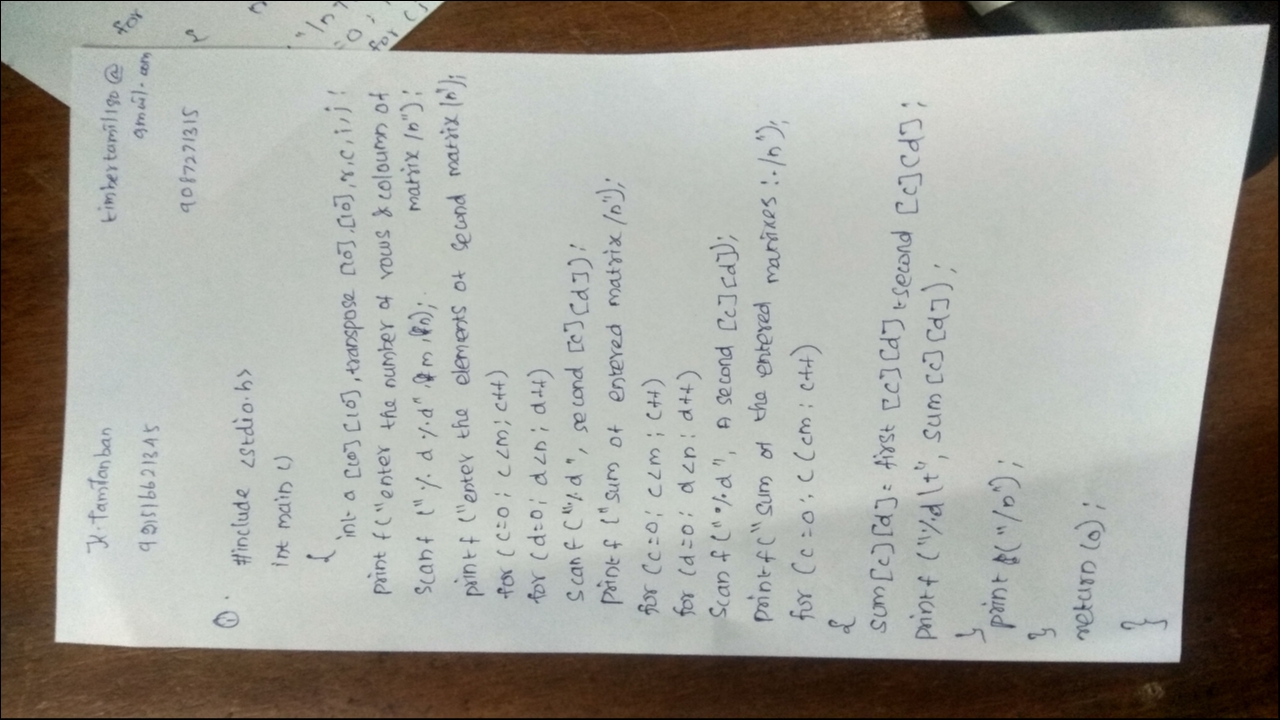 K. Tamilanban timbertamil180@
gmail.com
9087271315
①.
#include <stdio.h>
int main ()
{
int a [10] [10], transpose [10], [10], r, c, i, j ;
print f ("enter the number of rows & coloumn of
matrix /n") ;
Scanf ("%d %d", & m, &n);
print f ("enter the elements of second matrix /n");
for (c=0 ; c<m ; c++)
for (d=0 ; d<n ; d++)
Scanf ("%d", second [c] [d]) ;
print f ("sum of entered matrix /n");
for (c=0; c<m ; c++)
for (d=0 ; d<n ; d++)
Scan f ("%d", A second [c] [d]);
print f ("sum of the entered matrixes :-/n");
for (c=0; c (cm ; c++)
{
sum [c] [d] = first [c] [d] + second [c] [d] ;
print f ("%d \t", sum [c] [d]) ;
}
print f ("/n") ;
}
return (0) ;
}
for
{
"/n
for (